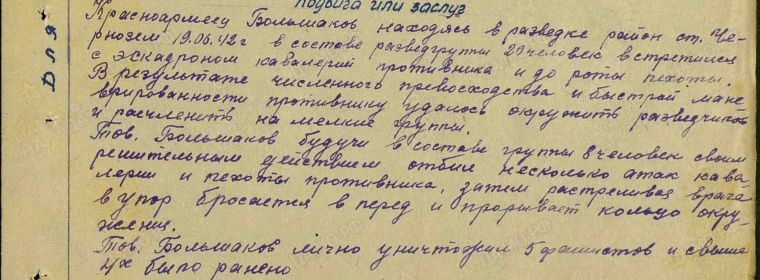 подвига или заслуг
Для
Красноармеец Большаков находясь в разведке район ст. Че-
рнозем 19.06.42г в составе разведгруппы 20 человек встретился
с эскадроном кавалерий противника и до роты пехоты.
В результате численного превосходства и быстрой мане
врированности противнику удалось окружить разведчиков
и расчленить на мелкие группы.
Тов. Большаков будучи в составе группы 8 человек своим
решительным действием отбил несколько атак кава
лерии и пехоты противника, затем растреливая врага
в упор бросается в перед и прорывает кольцо окру-
жения.
Тов. Большаков лично уничтожил 5 фашистов и свыше
4х было ранено